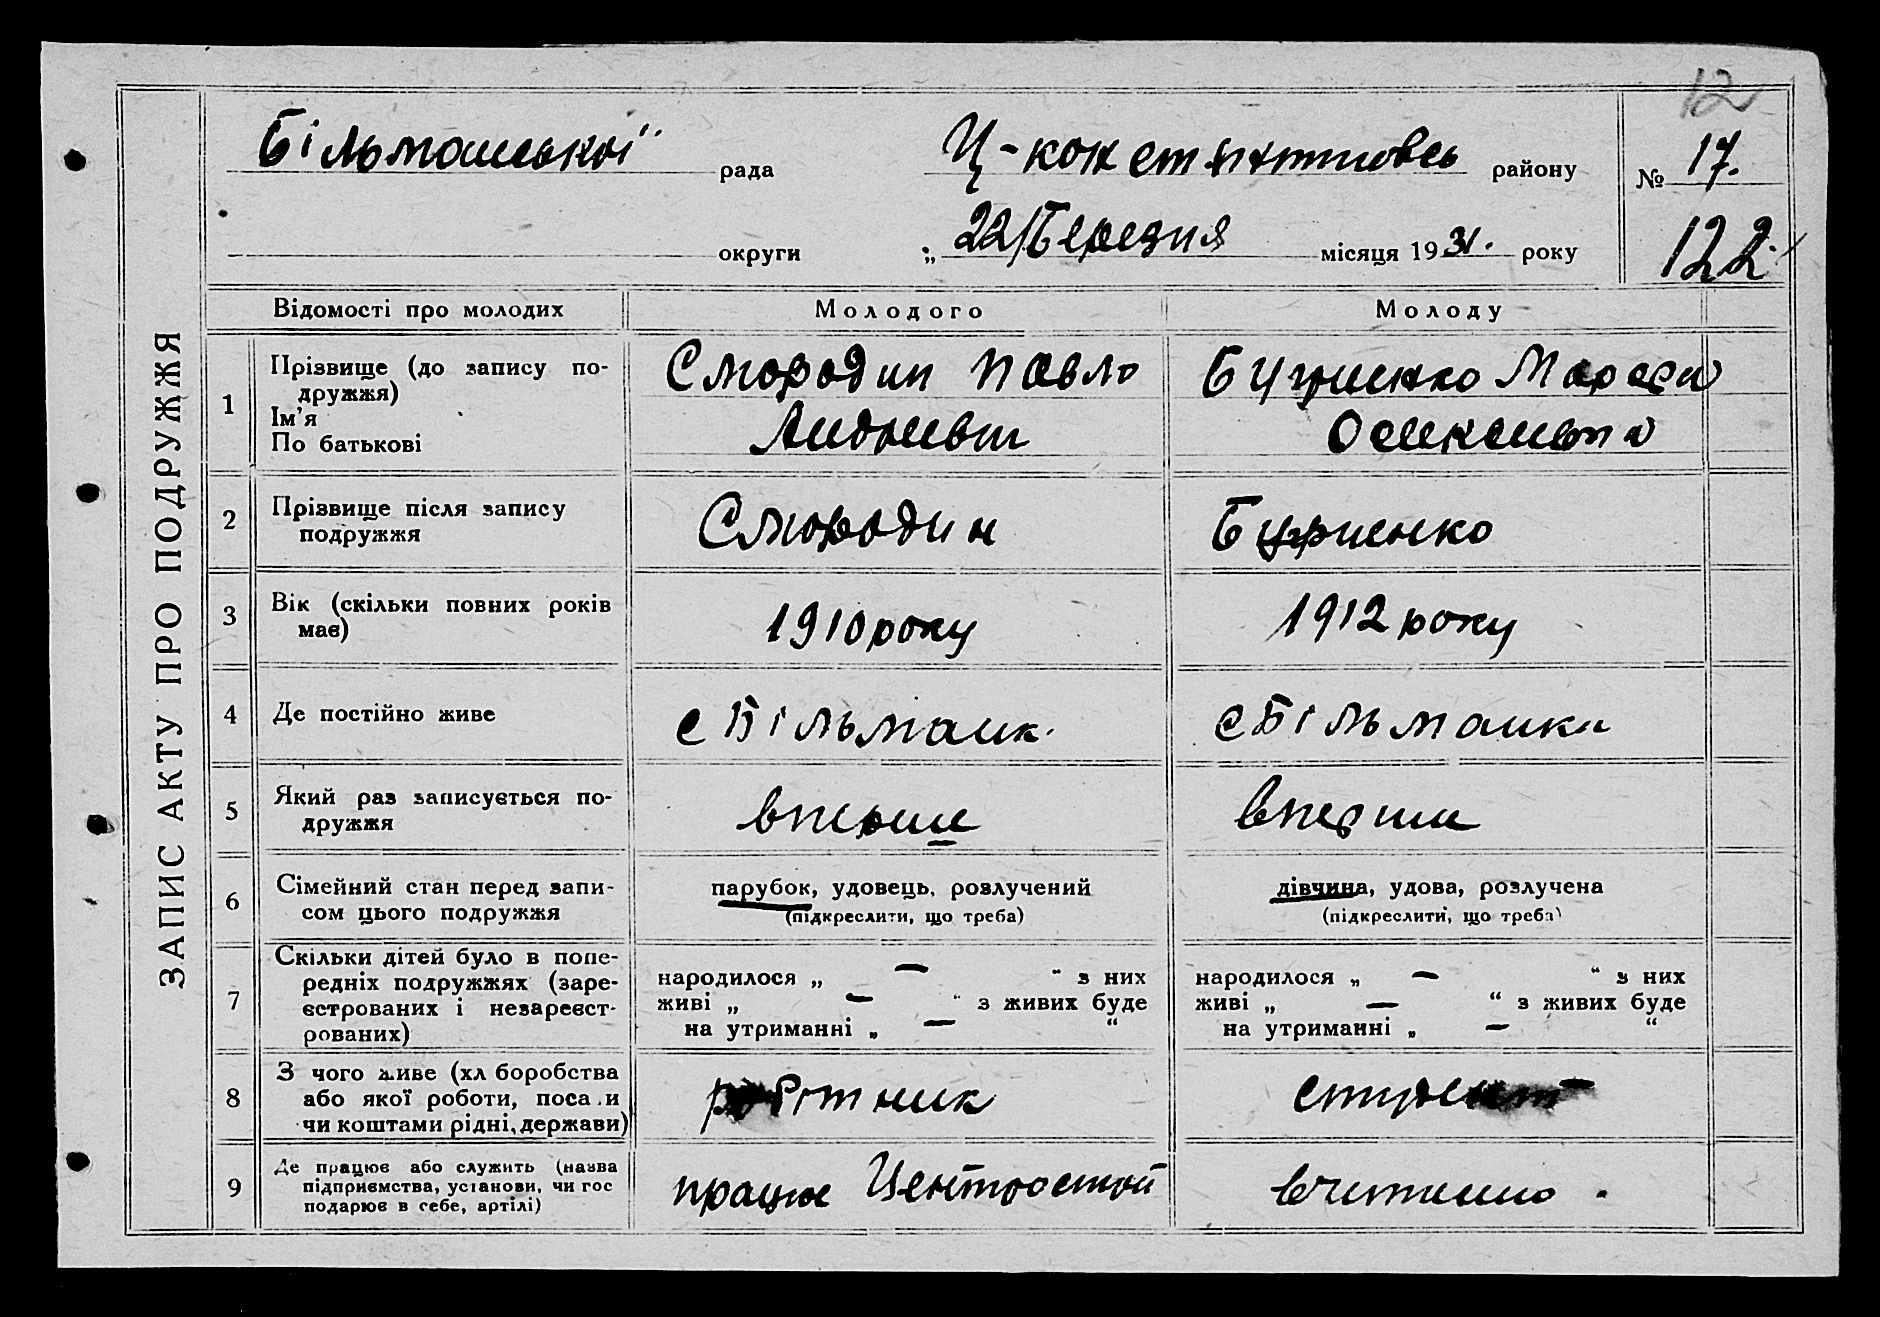 12
Більмашської рада
Ц-константиновсь району
№ 17.
округи
„ 22/Березня місяця 1931. року
122.
ЗАПИС АКТУ ПРО ПОДРУЖЖЯ
Відомості про молодих
Молодого
Молоду
1
Прізвище (до запису по-
дружжя)
Ім'я
По батькові
Смородин Павло
Андрієвич
Марфа
2
Прізвище після запису
подружжя
Смородин
3
Вік (скільки повних років
має)
1910 року
1912 року
4
Де постійно живе
с Більманк.
с Більманка
5
Який раз записується по-
дружжя
вперше
вперше
6
Сімейний стан перед запи-
сом цього подружжя
парубок, удовець, розлучений
(підкреслити, що треба)
дівчина, удова, розлучена
(підкреслити, що треба)
7
Скільки дітей було в попе-
редніх подружжях (заре-
єстрованих і незареєст-
рованих)
народилося „ — “ з них
живі „ — “ з живих буде
на утриманні „ — “
народилося „ — “ з них
живі „ — “ з живих буде
на утриманні „ — “
8
З чого живе (хліборобства
або якої роботи, посади
чи коштами рідні, держави)
робітник
студент
9
Де працює або служить (назва
підприємства, установи, чи гос
подарює в себе, артілі)
працює